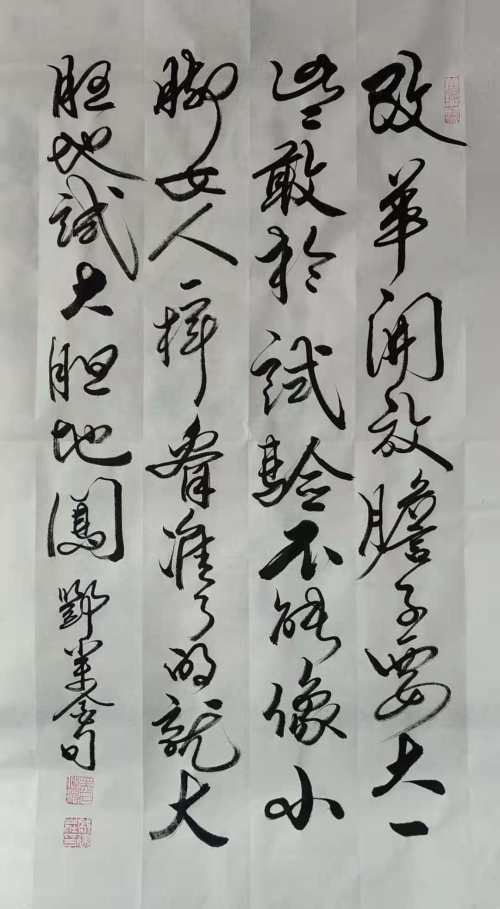 改革開放膽子要大一
些敢於試驗不能像小
脚女人一样看准了的就大
胆地試大胆地闖 鄧小平金句